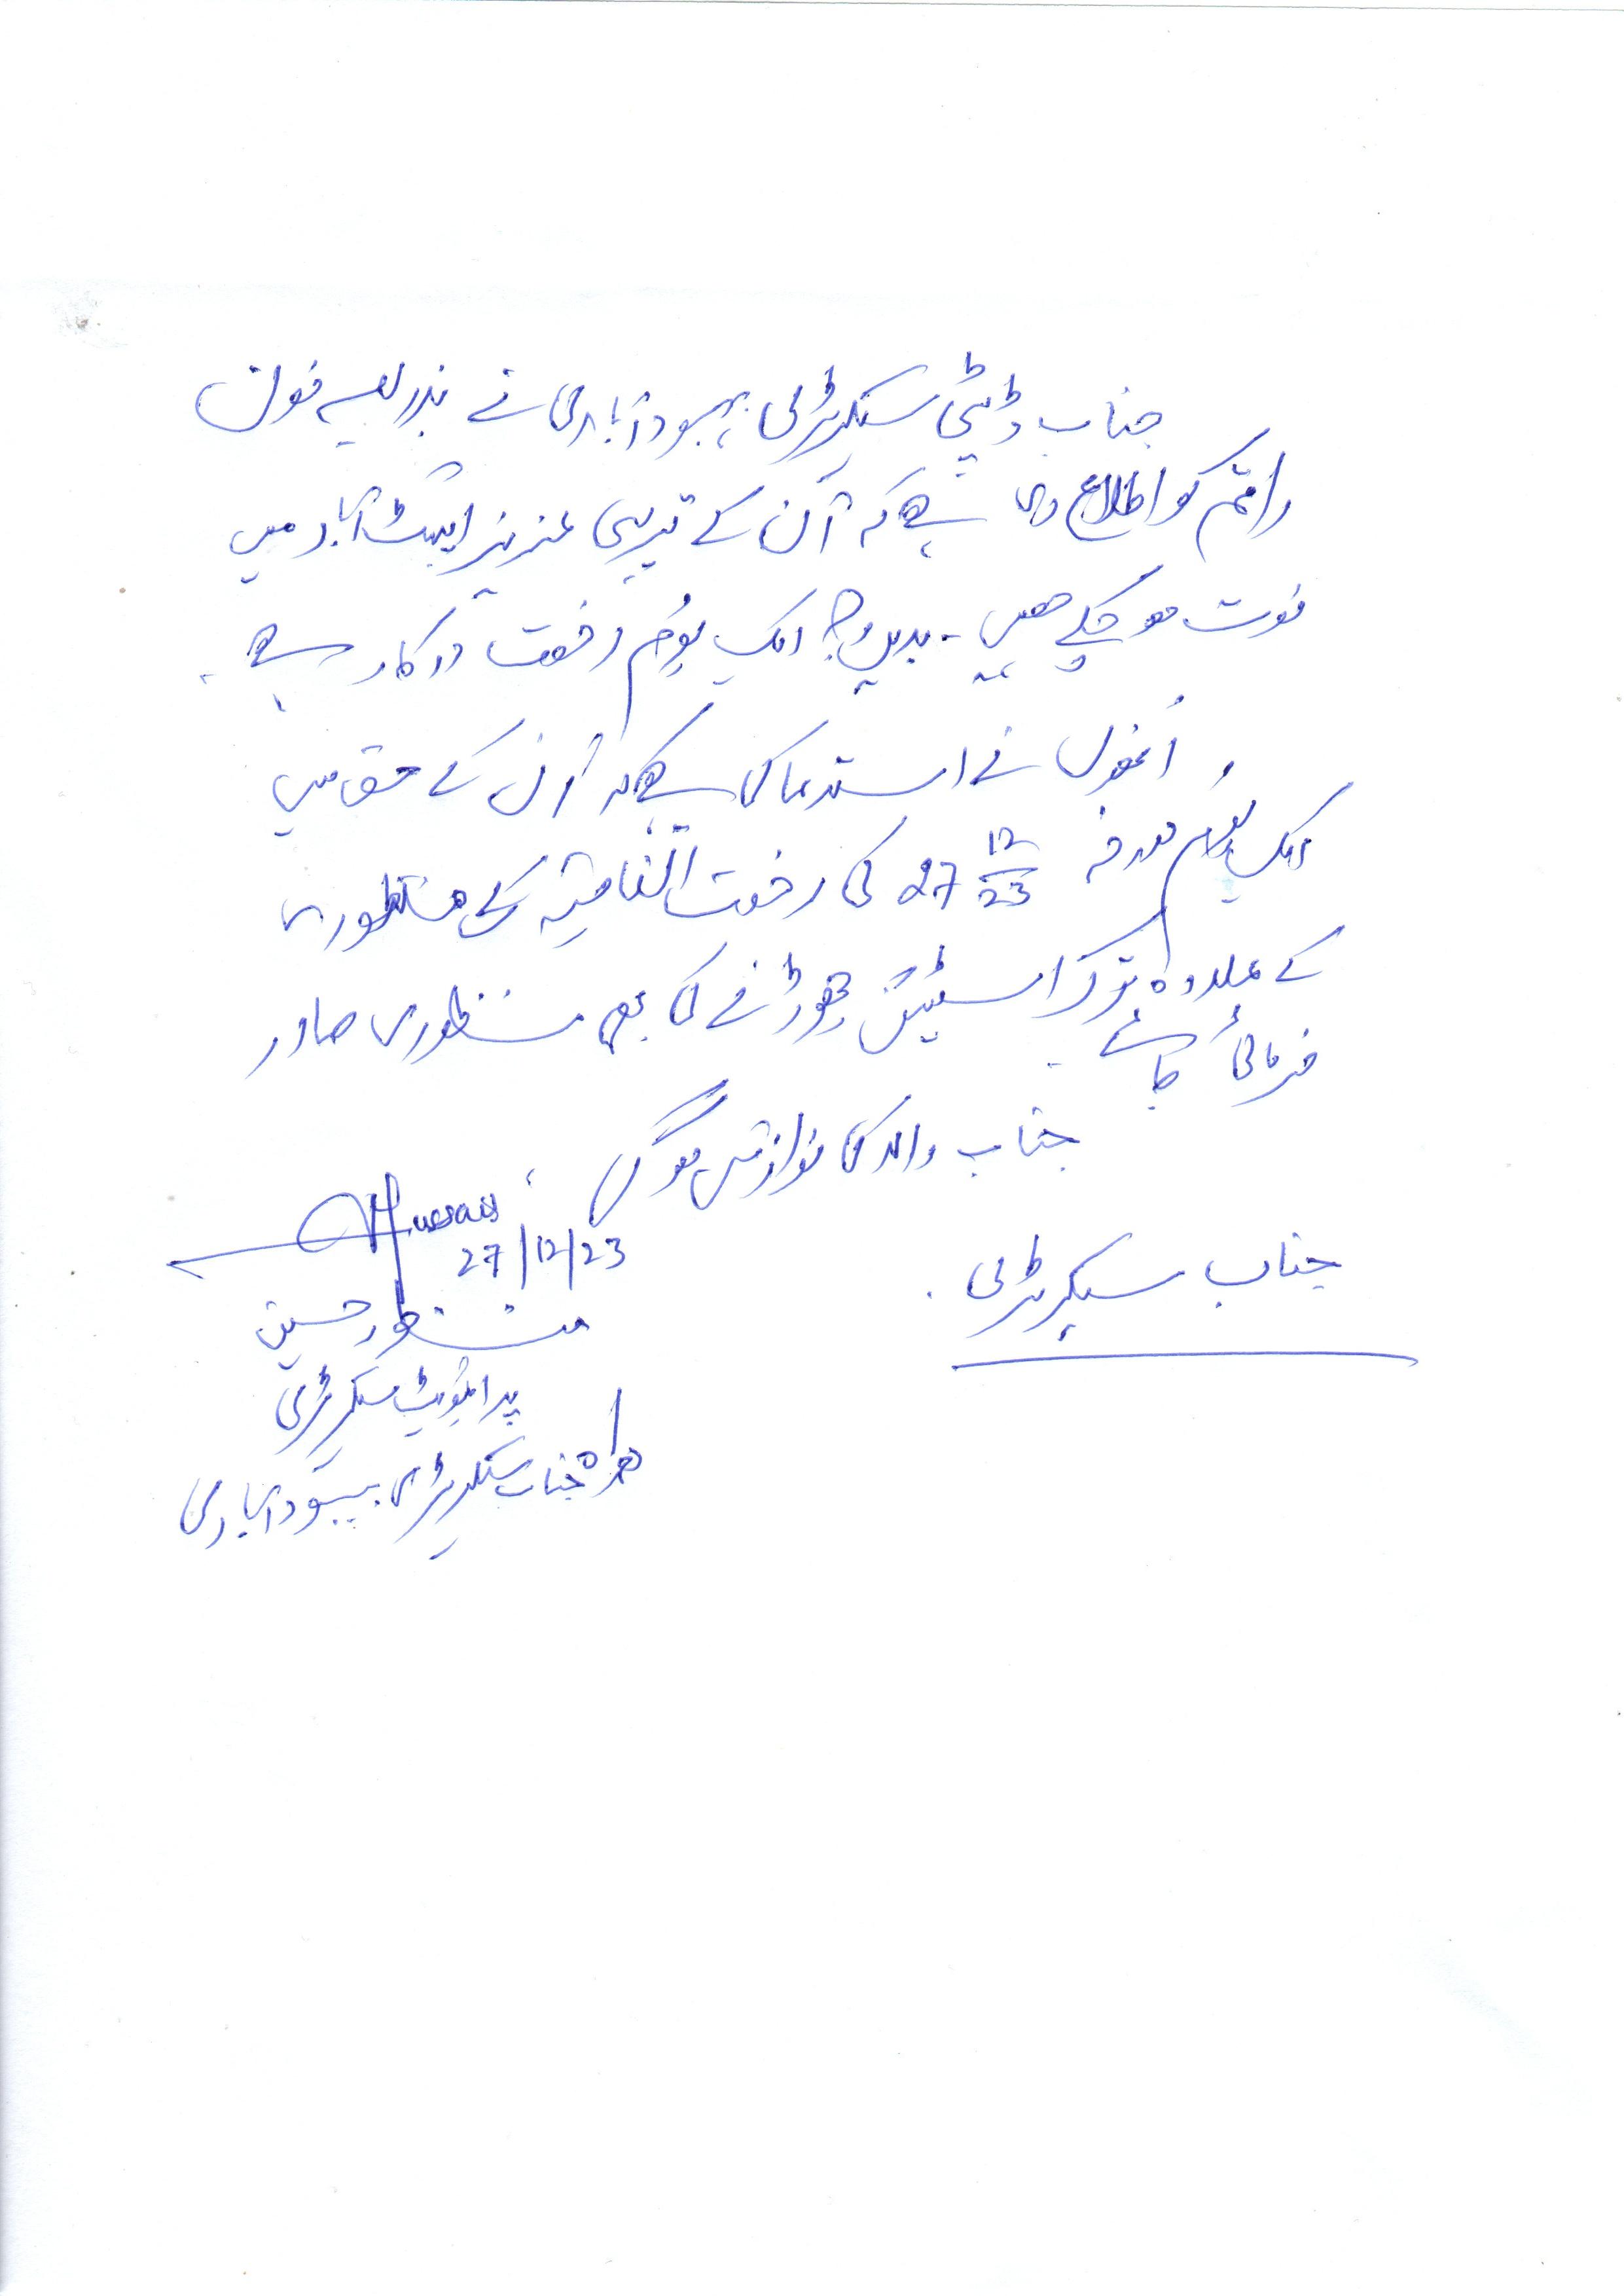 جناب ڈپٹی سیکریٹری بہبود آبادی نے بذریعہ فون
راقم کو اطلاع دی ہے کہ اُن کے قریبی عزیز ایبٹ آباد میں
فوت ہو چکے ھیں ۔ بدیں وجہ ایک یوم رخصت درکار ہے ۔
اُنھوں نے استدعا کی ہے کہ اُن کے حق میں
ایک یوم مورخہ 27 12/23 کی رخصت اتفاقیہ کی منظوری
کے علاوہ ترک اسٹیشن چھوڑنے کی بھی منظوری صادر
فرمائی جائے ۔
جناب والا کی نوازش ہوگی ۔
Hussain
27/12/23
جناب سیکریٹری .
منظور حسین
پرائیویٹ سیکریٹری
ھمراہ جناب سیکریٹری بہبود آبادی